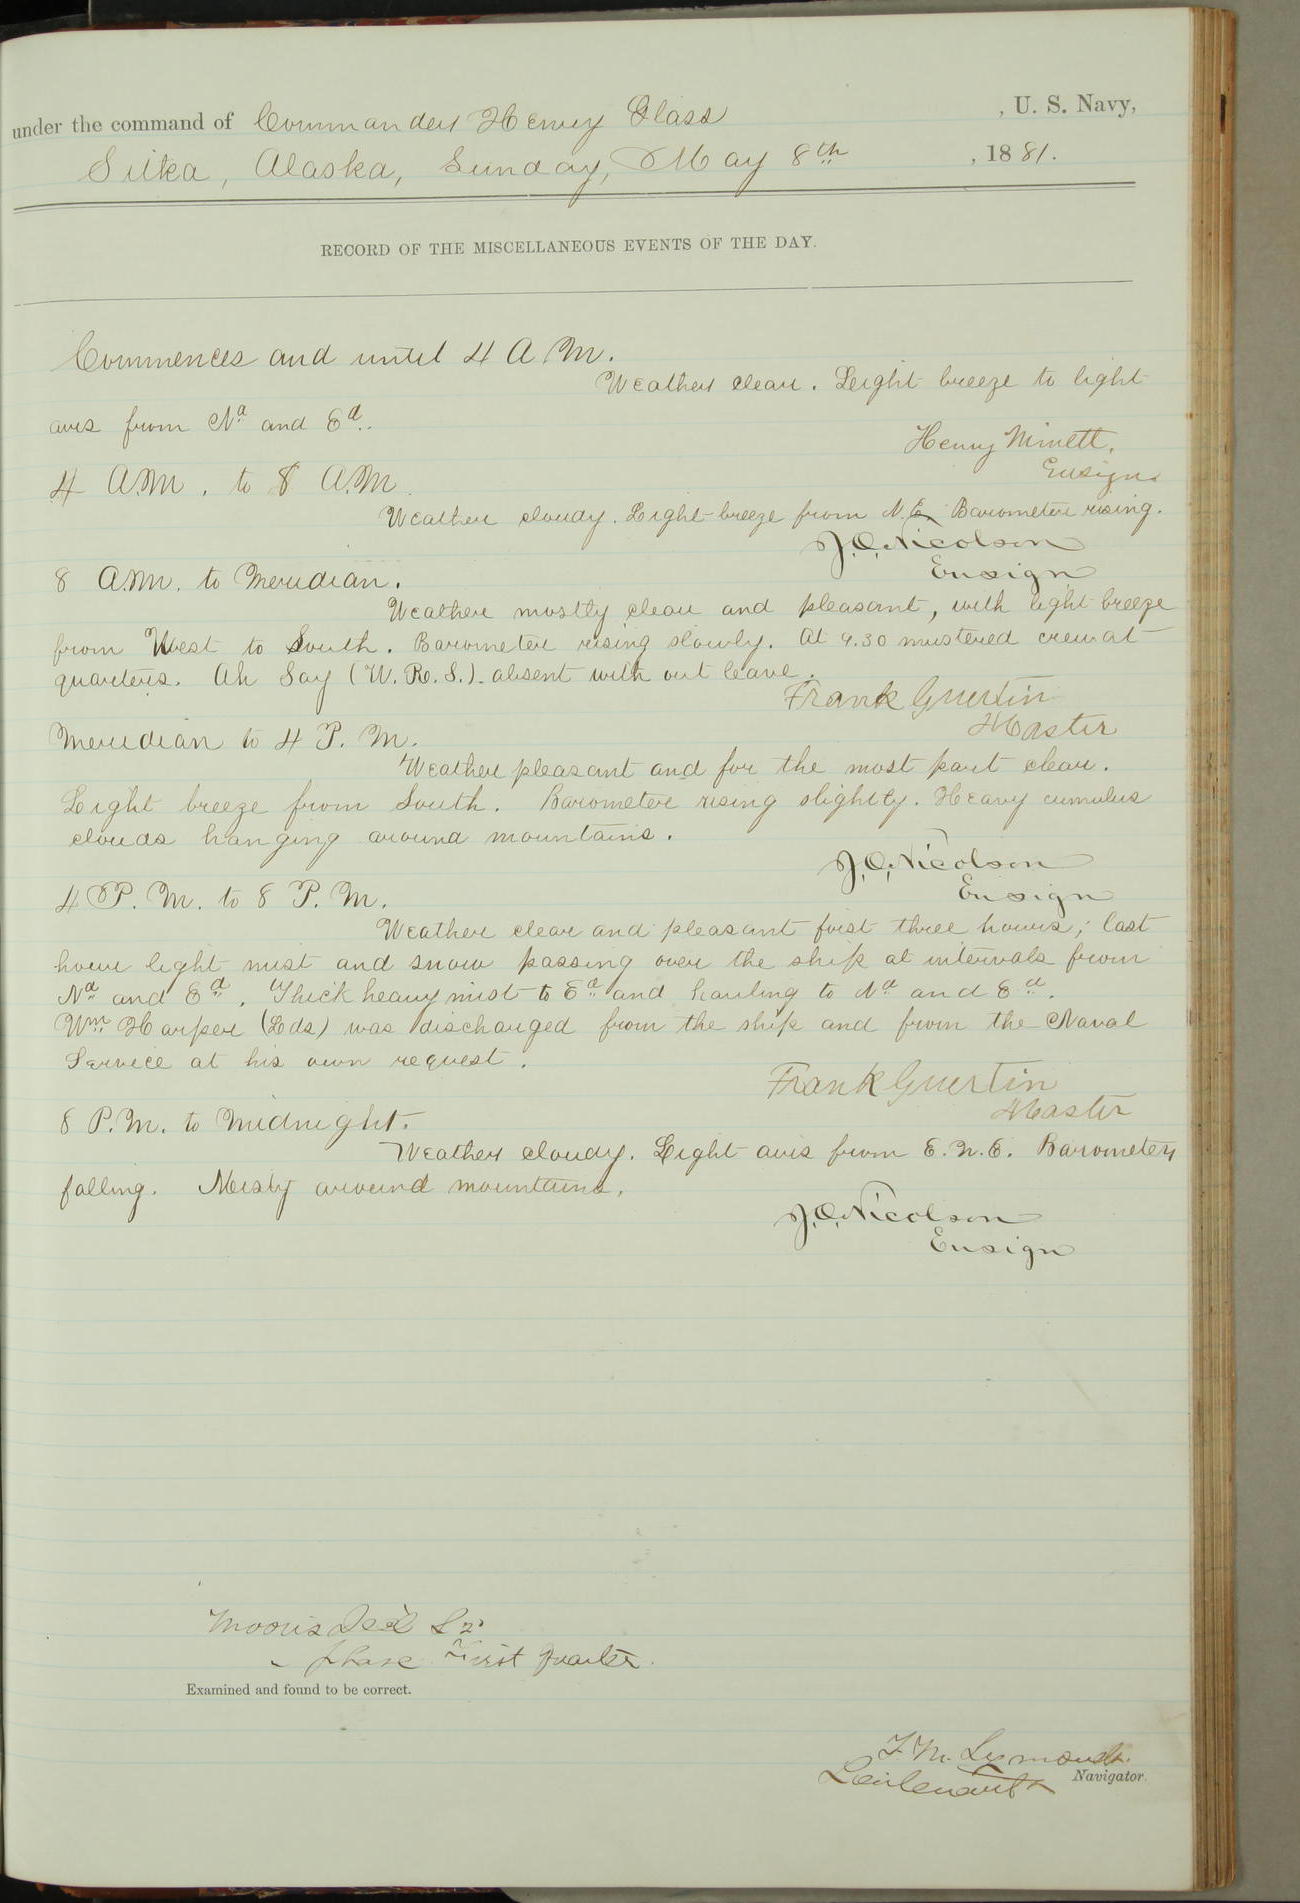 under the command of Commander Henry Glass , U. S. Navy,
Sitka, Alaska, Sunday, May 8th , 1881.
RECORD OF THE MISCELLANEOUS EVENTS OF THE DAY.
Commences and until 4 A M.
Weather clear. Light breeze to light
airs from Nd and Ed.
Henry Minett,
Ensign.
4 A.M. to 8 A.M.
Weather cloudy. Light breeze from N.E. Barometer rising.
J.O. Nicolson
Ensign
8 A.M. to Meridian.
Weather mostly clear and pleasant, with light breeze
from West to South. Barometer rising slowly. At 9.30 mustered crew at
quarters. Ah Say (W.R.S.) absent with out leave.
Frank Guertin
Master
Meridian to 4 P. M.
Weather pleasant and for the most part clear.
Light breeze from South. Barometer rising slightly. Heavy cumulus
clouds hanging around mountains.
J.O. Nicolson
Ensign
4 P. M. to 8 P. M.
Weather clear and pleasant first three hours; last
hour light mist and snow passing over the ship at intervals from
Nd and Ed. Thick heavy mist to Ed and hauling to Nd and Ed.
Wm Harper (Lds) was discharged from the ship and from the Naval
Service at his own request.
Frank Guertin
Master
8 P.M. to Midnight.
Weather cloudy. Light airs from E.N.E. Barometer
falling. Misty around mountains.
J.O. Nicolson
Ensign
Moon's Dec'l
" phase First Quarter.
Examined and found to be correct.
F. M. Symonds.
Lieutenant Navigator.